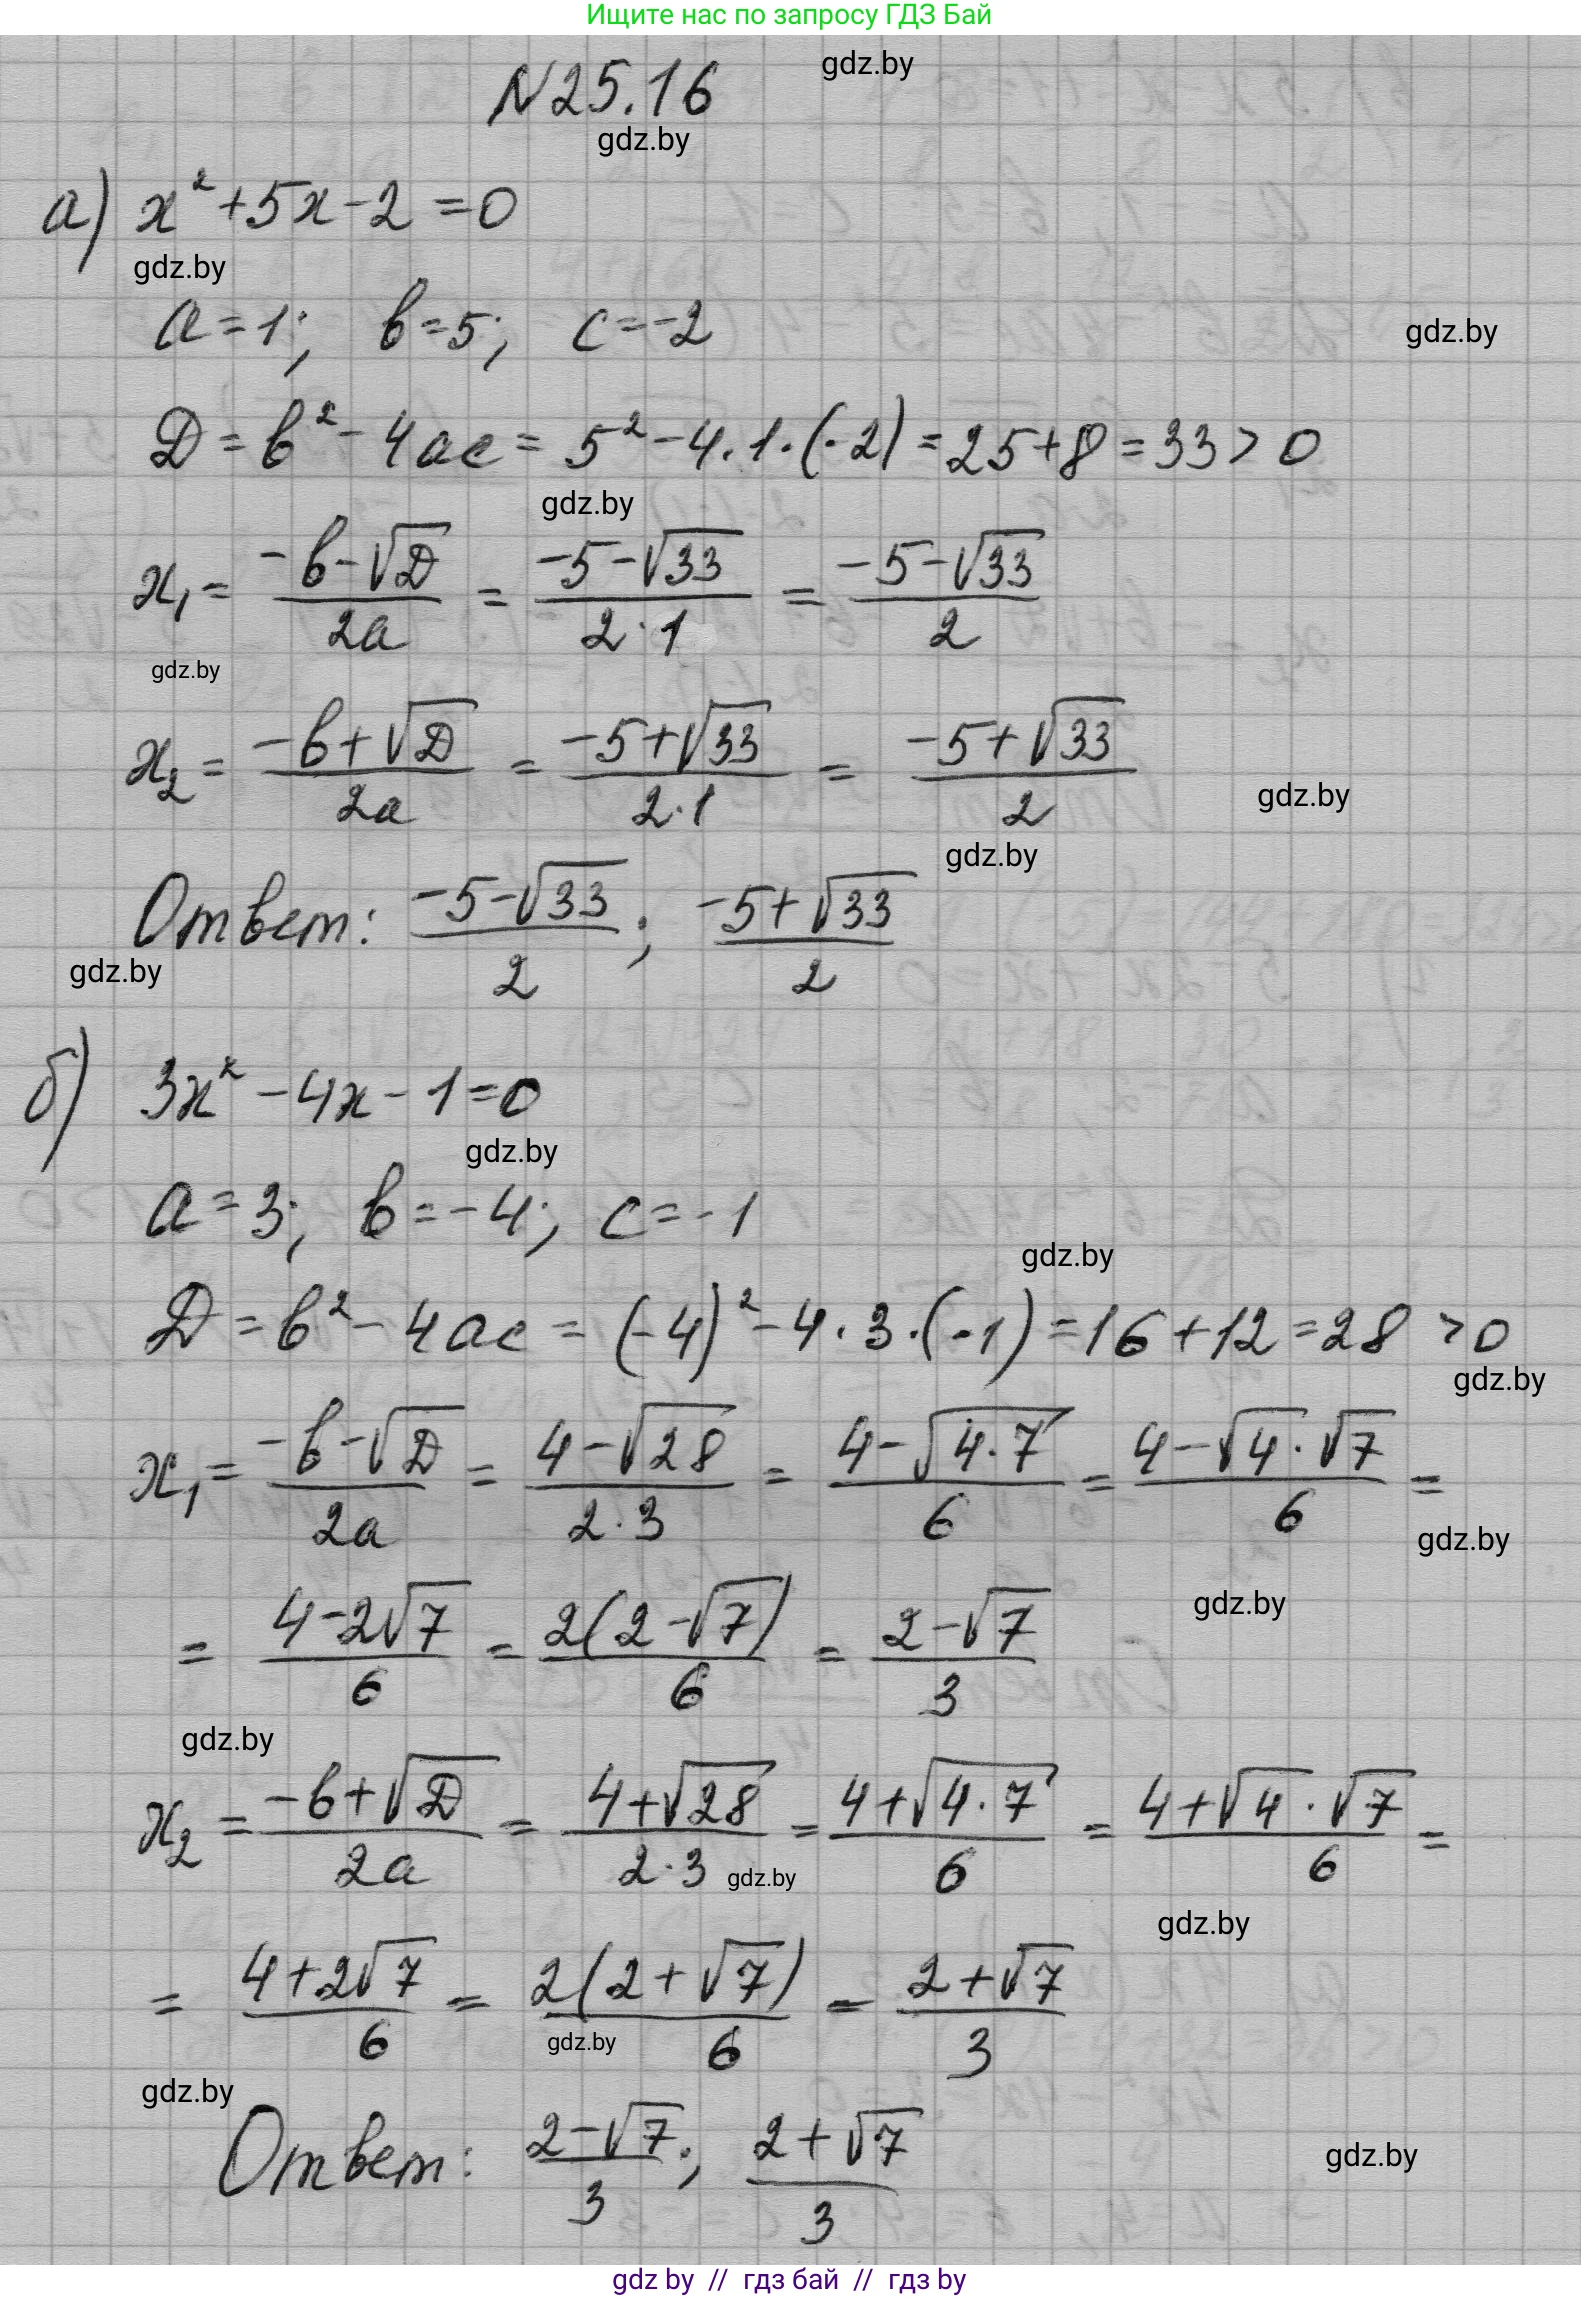 Ищите нас по запросу ГДЗ Бай
gdz.by
N25.16
gdz.by
а) x² + 5x - 2 = 0
gdz.by
a = 1; b = 5; c = -2
gdz.by
D = b² - 4ac = 5² - 4 · 1 · (-2) = 25 + 8 = 33 > 0
gdz.by
x₁ = (-b - √D)/(2a) = (-5 - √33)/(2 · 1) = (-5 - √33)/2
gdz.by
x₂ = (-b + √D)/(2a) = (-5 + √33)/(2 · 1) = (-5 + √33)/2
gdz.by
gdz.by
Ответ: (-5 - √33)/2; (-5 + √33)/2
gdz.by
б) 3x² - 4x - 1 = 0
gdz.by
a = 3; b = -4; c = -1
gdz.by
D = b² - 4ac = (-4)² - 4 · 3 · (-1) = 16 + 12 = 28 > 0
gdz.by
x₁ = (-b - √D)/(2a) = (4 - √28)/(2 · 3) = (4 - √(4 · 7))/6 = (4 - √4 · √7)/6 =
gdz.by
gdz.by
= (4 - 2√7)/6 = 2(2 - √7)/6 = (2 - √7)/3
gdz.by
x₂ = (-b + √D)/(2a) = (4 + √28)/(2 · 3) = (4 + √(4 · 7))/6 = (4 + √4 · √7)/6 =
gdz.by
gdz.by
= (4 + 2√7)/6 = 2(2 + √7)/6 = (2 + √7)/3
gdz.by
gdz.by
Ответ: (2 - √7)/3; (2 + √7)/3
gdz.by
gdz by // гдз бай // гдз by